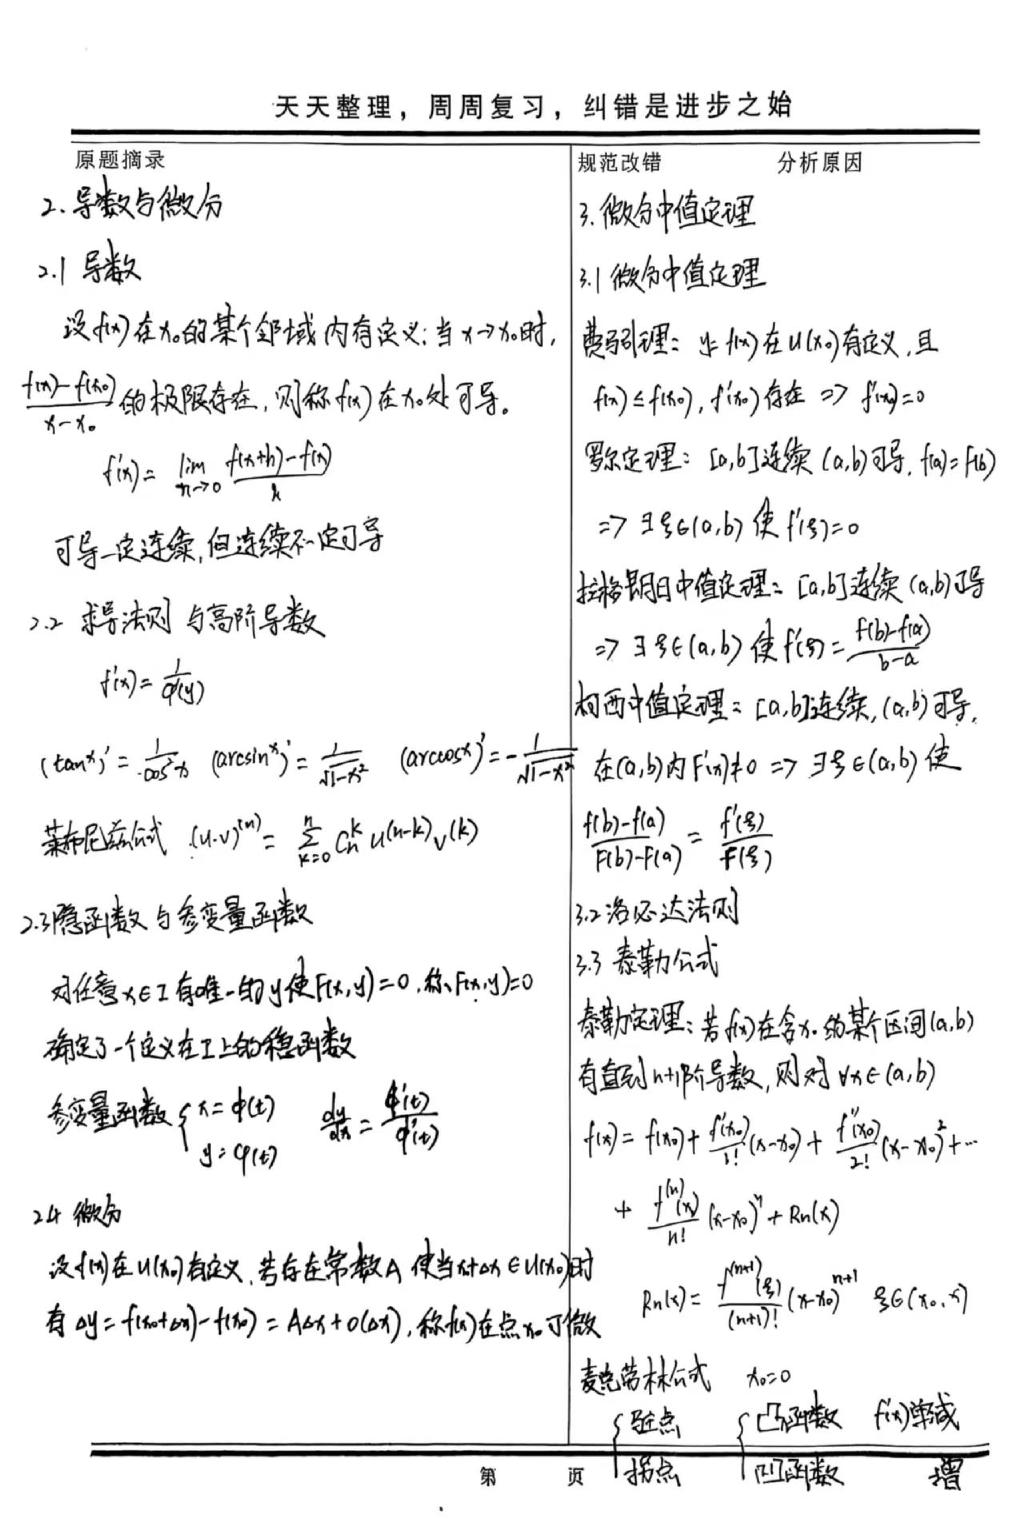 天天整理，周周复习，纠错是进步之始
原题摘录
2. 导数与微分
2.1 导数
设f(x)在x₀的某个邻域内有定义；当x→x₀时，
(f(x)-f(x₀))/(x-x₀) 的极限存在，则称f(x)在x₀处可导。
f'(x) = lim_{n→0} (f(x+h)-f(x))/h
可导一定连续，但连续不一定可导
2.2 求导法则与高阶导数
f'(x) = 1/φ'(y)
(tanx)' = 1/cos²x (arcsinx)' = 1/√(1-x²) (arccosx)' = -1/√(1-x²)
莱布尼兹公式 (u·v)^(n) = Σ_{k=0}^{n} C_n^k u^(n-k) v^(k)
2.3 隐函数与参变量函数
对任意x∈I有唯一的y使F(x,y)=0，称F(x,y)=0
确定了一个定义在I上的隐函数
参变量函数 { x=φ(t) dy/dx = φ'(t)/φ'(t)
y=φ(t)
2.4 微分
设f(x)在U(x₀)有定义，若存在常数A 使当x+Δx∈U(x₀)时
有Δy=f(x₀+Δx)-f(x₀)=AΔx+o(Δx)，称f(x)在点x₀可微
规范改错 分析原因
3. 微分中值定理
3.1 微分中值定理
费马引理：若f(x)在U(x₀)有定义，且
f(x)≤f(x₀)，f'(x₀)存在 => f'(x₀)=0
罗尔定理：[a,b]连续 (a,b)可导，f(a)=f(b)
=> ∃ξ∈(a,b) 使f'(ξ)=0
拉格朗日中值定理：[a,b]连续 (a,b)可导
=> ∃ξ∈(a,b) 使f'(ξ) = (f(b)-f(a))/(b-a)
柯西中值定理：[a,b]连续，(a,b)可导，
在(a,b)内F'(x)≠0 => ∃ξ∈(a,b) 使
(f(b)-f(a))/(F(b)-F(a)) = f'(ξ)/F(ξ)
3.2 洛必达法则
3.3 泰勒公式
泰勒定理：若f(x)在含x₀的某个区间(a,b)
有直到n+1阶导数，则对∀x∈(a,b)
f(x) = f(x₀) + f'(x₀)/1! (x-x₀) + f''(x₀)/2! (x-x₀)² + …
+ f^(n)(x)/n! (x-x₀)ⁿ + Rn(x)
Rn(x) = f^(n+1)(ξ)/(n+1)! (x-x₀)^{n+1} ξ∈(x₀,x)
麦克劳林公式 x₀=0
{ 驻点 { 凸函数 f'(x)单减
拐点 凹函数 增
第 页